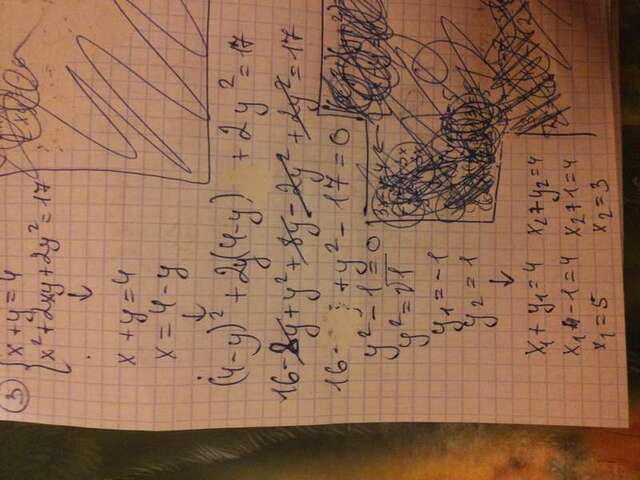 3 x+y=4
x²+2xy+2y²=17
↓
x+y=4
x=4-y
↓
(4-y)²+2y(4-y)+2y²=17
16-8y+y²+8y-2y²+2y²=17
16- +y²-17=0
y²-1=0
y²=√1
y₁=-1
y₂=1
↓
x₁+y₁=4 x₂+y₂=4
x₁+-1=4 x₂+1=4
x₁=5 x₂=3